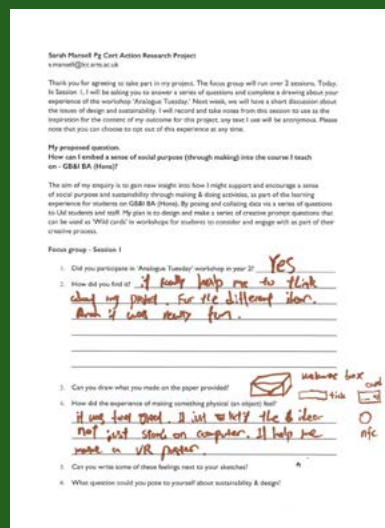 Sarah Mansell Pg Cert Action Research Project
s.mansell@lcc.arts.ac.uk
Thank you for agreeing to take part in my project. The focus group will run over 2 sessions. Today,
In Session 1, I will be asking you to answer a series of questions and complete a drawing about your
experience of the workshop 'Analogue Tuesday.' Next week, we will have a short discussion about
the issues of design and sustainability. I will record and take notes from this session to use as the
inspiration for the content of my outcome for this project, any text I use will be anonymous. Please
note that you can choose to opt out of this experience at any time.
My proposed question.
How can I embed a sense of social purpose (through making) into the course I teach
on - GB&I BA (Hons)?
The aim of my enquiry is to gain new insight into how I might support and encourage a sense
of social purpose and sustainability through making & doing activities, as part of the learning
experience for students on GB&I BA (Hons). By posing and collating data via a series of questions
to UAL students and staff. My plan is to design and make a series of creative prompt questions that
can be used as 'Wild cards' in workshops for students to consider and engage with as part of their
creative process.
Focus group - Session 1
1. Did you participate in 'Analogue Tuesday' workshop in year 2? Yes
2. How did you find it? it really help me to think
about my project. For the different idea.
And it was really fun.
3. Can you draw what you made on the paper provided?
box
card
tick
nfc
4. How did the experience of making something physical (an object) feel?
it was feel good. I just the idea
not just stand on computer. It help me
make a VR poster.
5. Can you write some of these feelings next to your sketches?
6. What question could you pose to yourself about sustainability & design?